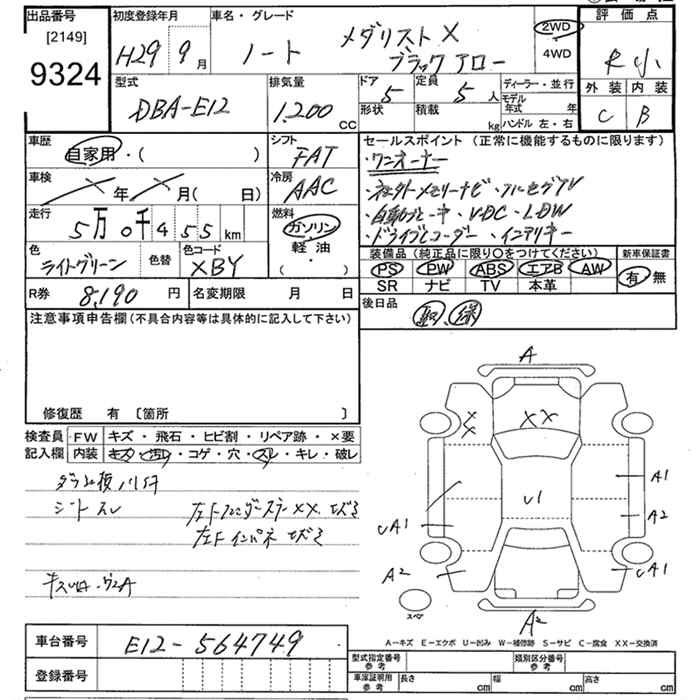 出品番号
[2149]
9324
初度登録年月
H29 9月
車名・グレード
ノート メダリスト X
ブラックアロー
2WD
4WD
評価点
R
外装 内装
C B
型式
DBA-E12
排気量
1,200 CC
ドア 5
形状
定員 5 人
積載 kg
ディーラー・並行
モデル年式 年
ハンドル 左・右
車歴
自家用・( )
シフト
FAT
セールスポイント (正常に機能するものに限ります)
・ワンオーナー
車検
年 月( 日)
冷房
AAC
・自動ブレーキ ・VDC ・LDW
・ドライブレコーダー ・インテリキー
走行
5万0千455km
燃料
ガソリン
軽油
( ・ )
色
ライトグリーン
色替
色コード
XBY
装備品 (純正品に限り○をつけてください)
PS PW ABS エアB AW
SR ナビ TV 本革
新車保証書
有 無
R券 8,190 円
名変期限 月 日
後日品
注意事項申告欄(不具合内容等は具体的に記入して下さい)
修復歴 有 [箇所 ]
検査員記入欄
FW キズ・飛石・ヒビ割・リペア跡・×要
内装 キズ・汚レ・コゲ・穴・スレ・キレ・破レ
シートスレ
A
XX
U1
A1
A2
UA1
UA1
A2
A2
スペア
A-キズ E-エクボ U-凹み W-補修跡 S-サビ C-腐食 XX-交換済
車台番号
E12-564749
登録番号
型式指定番号
参考
類別区分番号
参考
車庫証明用
参考
長さ cm
幅 cm
高さ cm